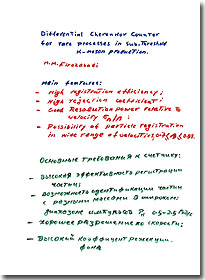 Differential Cherenkov Counter
for rare processes in Sub.Threshold
K-meson production.
Main features:
- High registration efficiency;
- High rejection coefficient;
- Good Resolution power relative to
velocity
- Possibility of particle registration
in wide range of velocities
Основные требования к счетчику:
- высокая эффективность регистрации
частиц;
- возможность идентификации частиц
с разными массами в широком
диапазоне импульсов
- хорошее разрешение по скорости;
- Высокий коэффициент режекции
фона